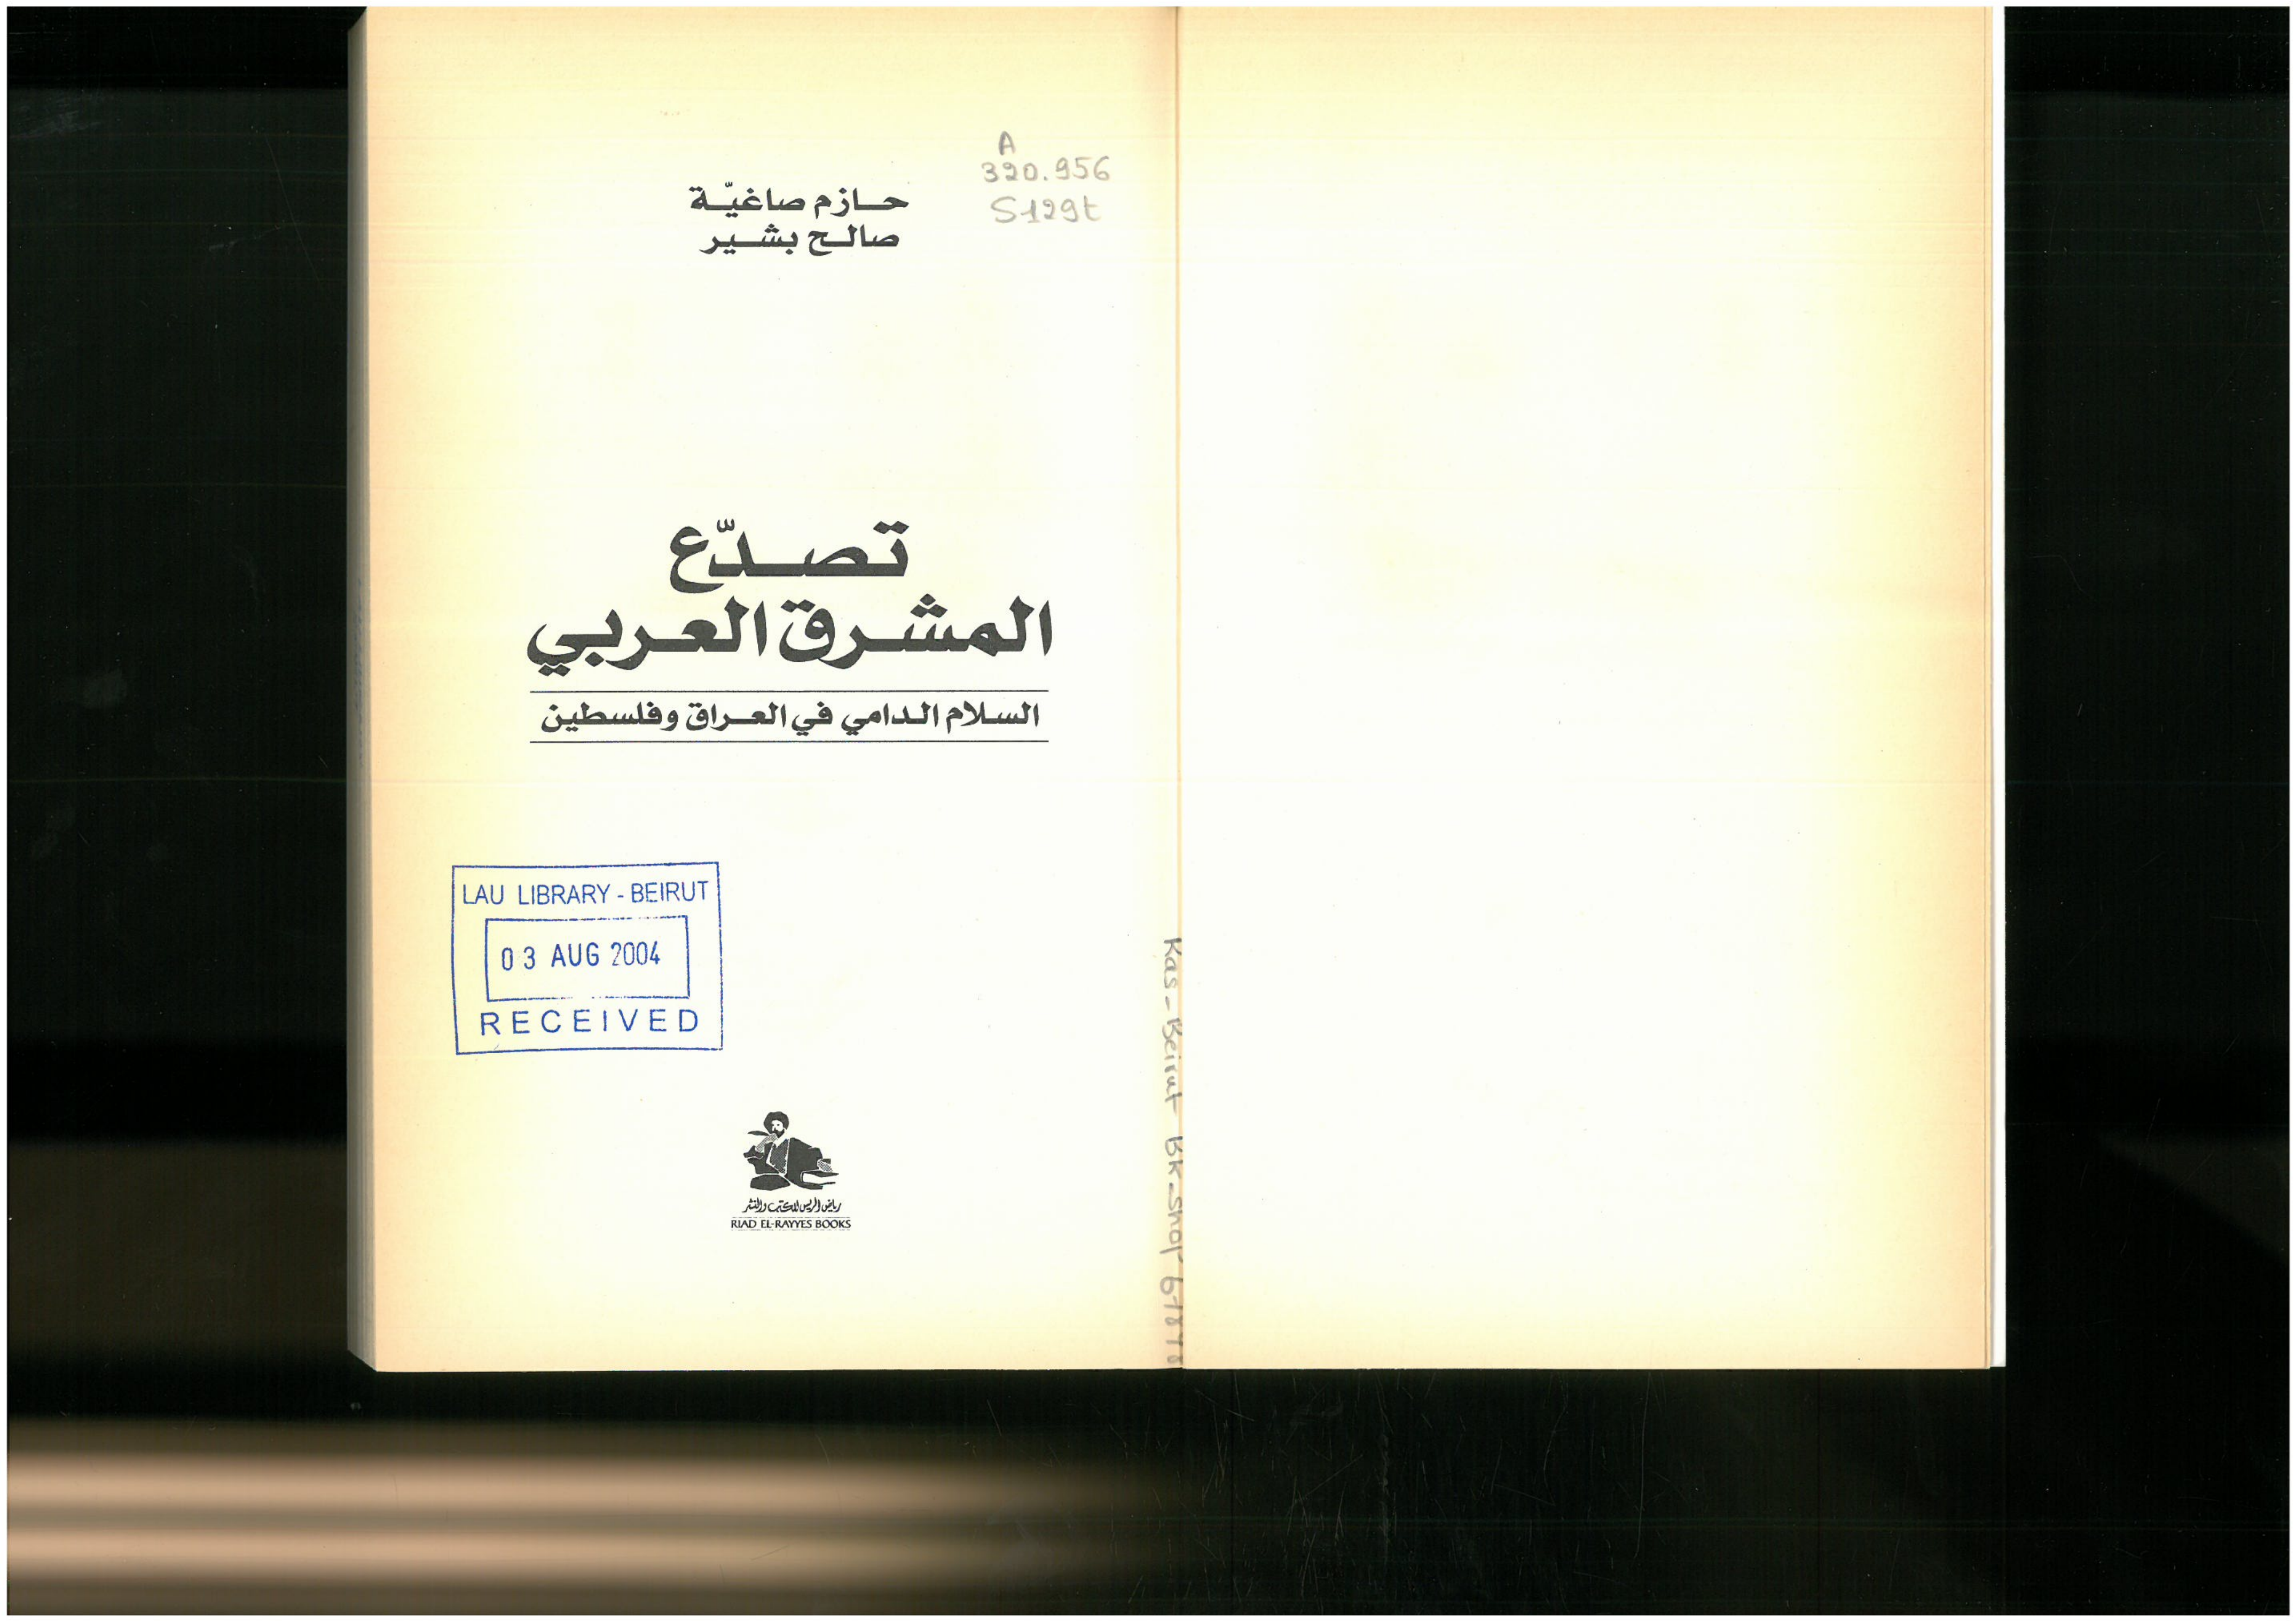 A
320.956
S129t
حازم صاغيّة
صالح بشير
تصدّع
المشرق العربي
السلام الدامي في العراق وفلسطين
LAU LIBRARY - BEIRUT
03 AUG 2004
RECEIVED
رياض الريس للكتب والنشر
RIAD EL-RAYYES BOOKS
Kas - Beirut BK-shop